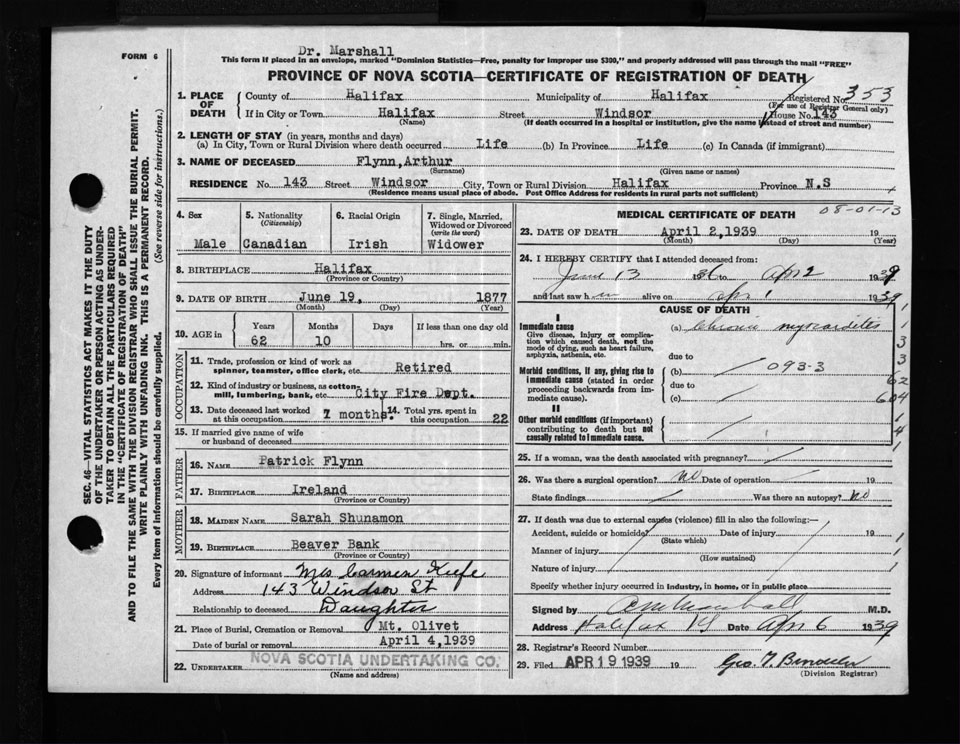 FORM 6
Dr. Marshall
This form if placed in an envelope, marked "Dominion Statistics—Free, penalty for improper use $300," and properly addressed will pass through the mail "FREE"
PROVINCE OF NOVA SCOTIA—CERTIFICATE OF REGISTRATION OF DEATH
SEC. 46—VITAL STATISTICS ACT MAKES IT THE DUTY
OF THE UNDERTAKER OR PERSON ACTING AS UNDER-
TAKER TO OBTAIN ALL THE PARTICULARS REQUIRED
IN THE "CERTIFICATE OF REGISTRATION OF DEATH"
AND TO FILE THE SAME WITH THE DIVISION REGISTRAR WHO SHALL ISSUE THE BURIAL PERMIT.
WRITE PLAINLY WITH UNFADING INK. THIS IS A PERMANENT RECORD.
Every item of Information should be carefully supplied. (See reverse side for instructions.)
1. PLACE OF DEATH County of Halifax Municipality of Halifax Registered No. 353
(For use of Registrar General only)
If in City or Town Halifax Street Windsor House No. 143
(Name) (If death occurred in a hospital or institution, give the name instead of street and number)
2. LENGTH OF STAY (in years, months and days)
(a) In City, Town or Rural Division where death occurred Life (b) In Province Life (c) In Canada (if immigrant)
3. NAME OF DECEASED Flynn, Arthur
(Surname) (Given name or names)
RESIDENCE No. 143 Street Windsor City, Town or Rural Division Halifax Province N.S
(Residence means usual place of abode. Post Office Address for residents in rural parts not sufficient)
4. Sex 5. Nationality (Citizenship) 6. Racial Origin 7. Single, Married, Widowed or Divorced (write the word)
Male Canadian Irish Widower
8. BIRTHPLACE Halifax
(Province or Country)
9. DATE OF BIRTH June 19, 1877
(Month) (Day) (Year)
10. AGE in Years Months Days If less than one day old
62 10 hrs. or min.
OCCUPATION
11. Trade, profession or kind of work as spinner, teamster, office clerk, etc. Retired
12. Kind of industry or business, as cotton-mill, lumbering, bank, etc City Fire Dept.
13. Date deceased last worked at this occupation 7 months. 14. Total yrs. spent in this occupation 22
15. If married give name of wife or husband of deceased
FATHER
16. NAME Patrick Flynn
17. BIRTHPLACE Ireland
(Province or Country)
MOTHER
18. MAIDEN NAME Sarah Shunamon
19. BIRTHPLACE Beaver Bank
(Province or Country)
20. Signature of informant Mrs Carmen Keefe
Address 143 Windsor St
Relationship to deceased Daughter
21. Place of Burial, Cremation or Removal Mt. Olivet
Date of burial or removal April 4, 1939
22. UNDERTAKER NOVA SCOTIA UNDERTAKING CO.
(Name and address)
MEDICAL CERTIFICATE OF DEATH 08-01-13
23. DATE OF DEATH April 2, 1939 19
(Month) (Day) (Year)
24. I HEREBY CERTIFY that I attended deceased from:
June 13 to Apr 2 1939
and last saw h alive on Apr 1 1939
CAUSE OF DEATH
I
Immediate cause
Give disease, injury or complication which caused death, not the mode of dying, such as heart failure, asphyxia, asthenia, etc.
(a) Chronic myocarditis
due to
Morbid conditions, if any, giving rise to immediate cause (stated in order proceeding backwards from immediate cause)
(b) 093-3
due to
(c)
II
Other morbid conditions (if important) contributing to death but not causally related to immediate cause.
25. If a woman, was the death associated with pregnancy?
26. Was there a surgical operation? no Date of operation 19
State findings Was there an autopsy? no
27. If death was due to external causes (violence) fill in also the following:—
Accident, suicide or homicide? Date of injury 19
(State which)
Manner of injury
(How sustained)
Nature of injury
Specify whether injury occurred in industry, in home, or in public place
Signed by C M Marshall M.D.
Address Halifax NS Date Apr 6 1939
28. Registrar's Record Number
29. Filed APR 19 1939 19
(Division Registrar)